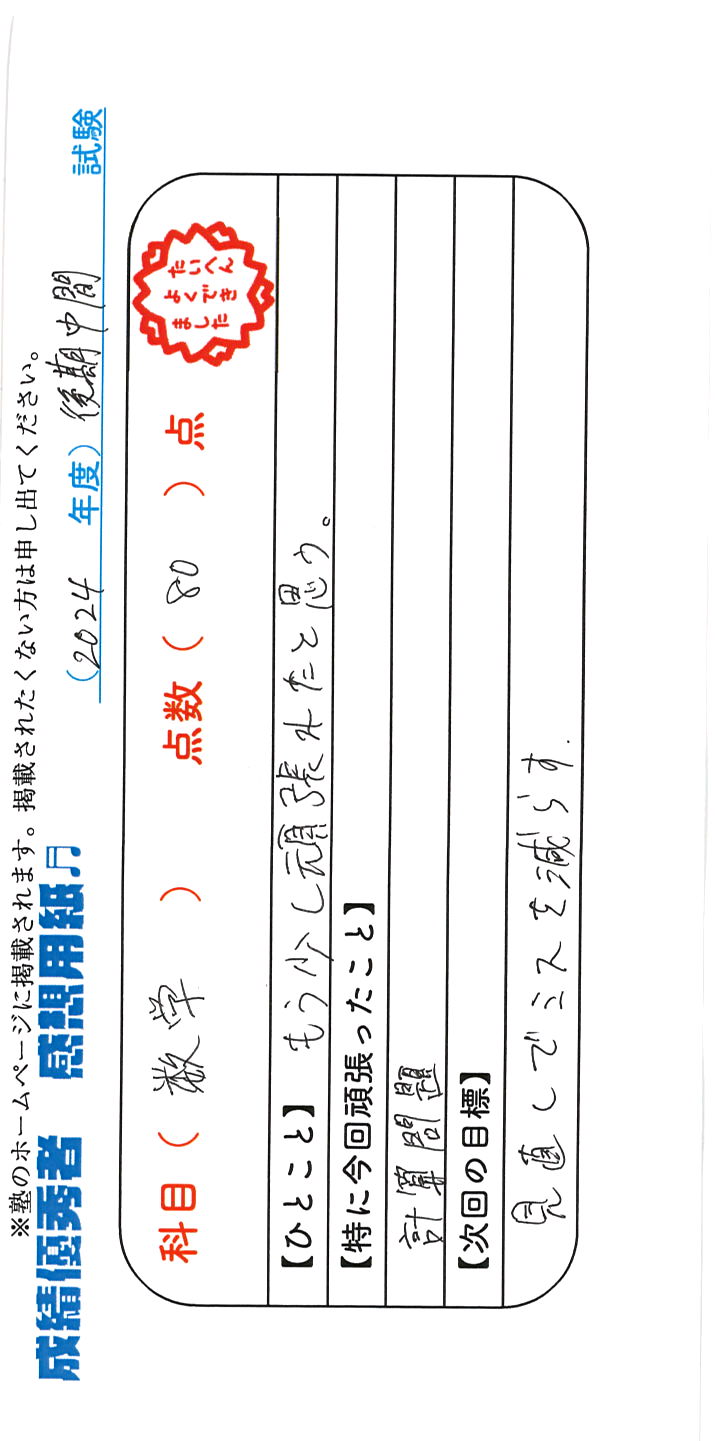 ※塾のホームページに掲載されます。掲載されたくない方は申し出てください。
成績優秀者 感想用紙♬ (2024 年度) 後期中間 試験
科目( 数学 ) 点数( 80 )点
たいへん
よくでき
ました
【ひとこと】 もう少し頑張れたと思う。
【特に今回頑張ったこと】
計算問題
【次回の目標】
見直しでミスを減らす.